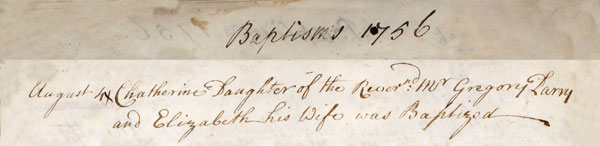 Baptisms 1756
August 4 Chatherine Daughter of the Reverᵈ Mʳ Gregory Parry
and Elizabeth his Wife was Baptized